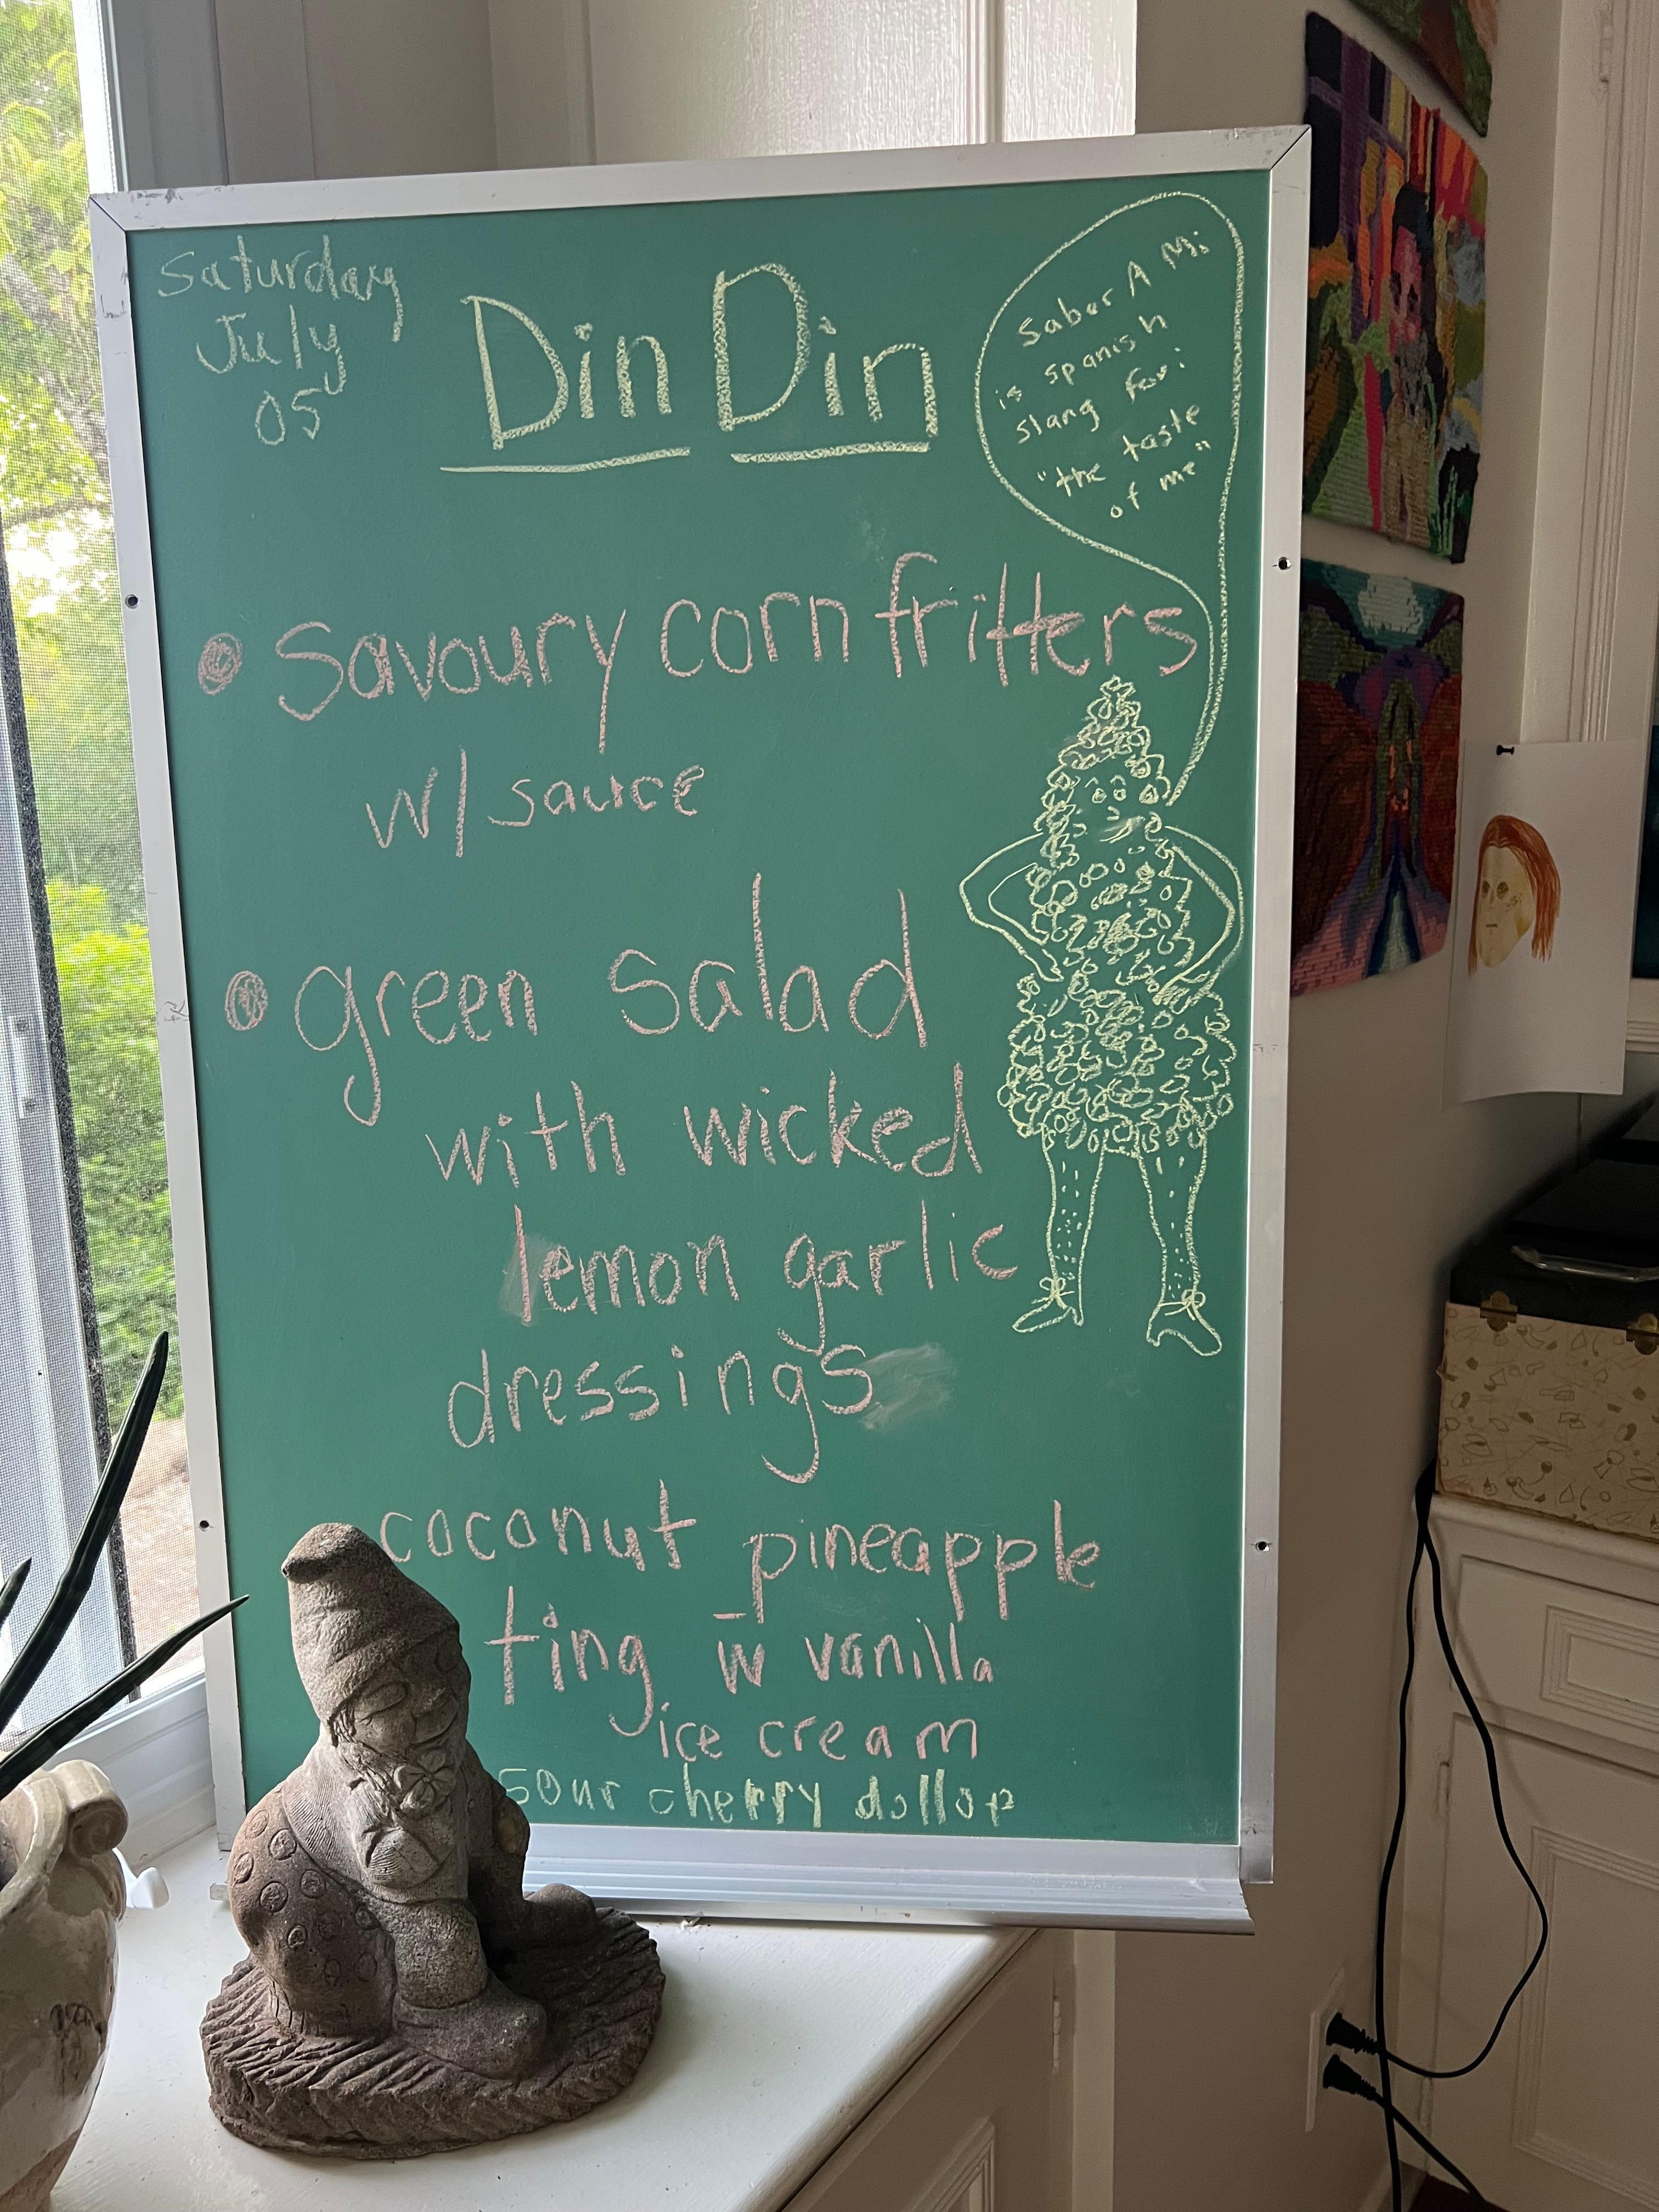 Saturday
July
05
Din Din
Sabor A Mi
is spanish
slang for:
"the taste
of me"
• Savoury corn fritters
w/ sauce
• green salad
with wicked
lemon garlic
dressings
coconut pineapple
ting w̅ vanilla
ice cream
sour cherry dollop